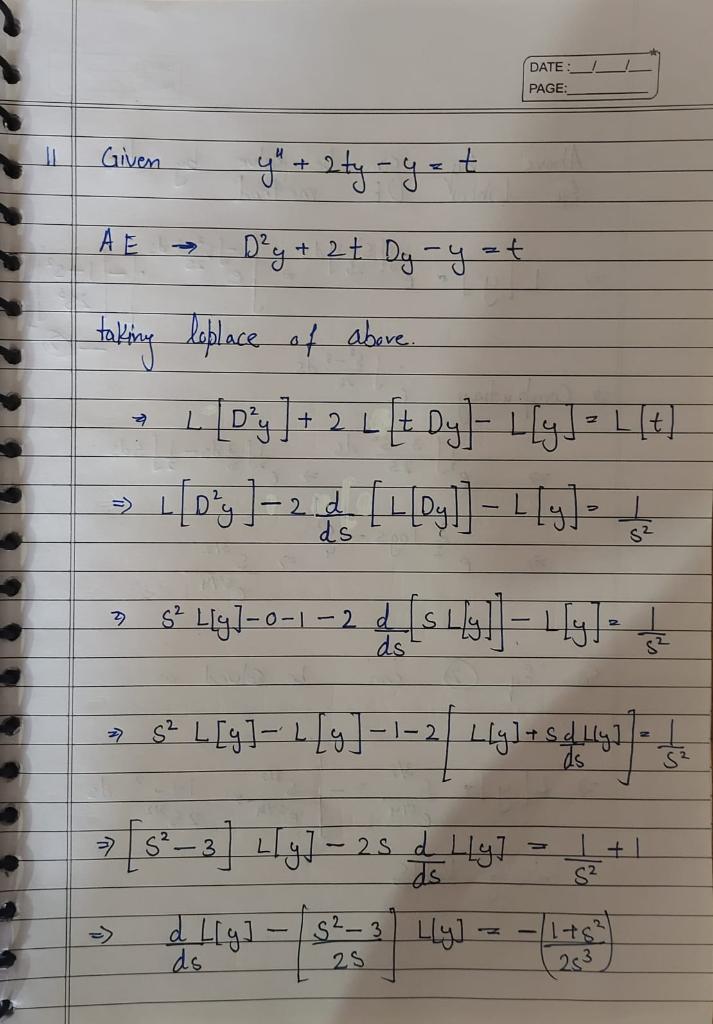 DATE: __/__/__
PAGE: ______
11 Given y" + 2ty - y = t
AE → D²y + 2t Dy - y = t
taking loplace of above.
→ L[D²y] + 2 L[t Dy] - L[y] = L[t]
⇒ L[D²y] - 2 d/ds [L[Dy]] - L[y] = 1/s²
⇒ S² L[y] - 0 - 1 - 2 d/ds [S L[y]] - L[y] = 1/s²
⇒ S² L[y] - L[y] - 1 - 2 [L[y] + S d/ds L[y]] = 1/S²
⇒ [S² - 3] L[y] - 2S d/ds L[y] = 1/S² + 1
⇒ d/ds L[y] - [S² - 3 / 2S] L[y] = - (1 + S² / 2S³)